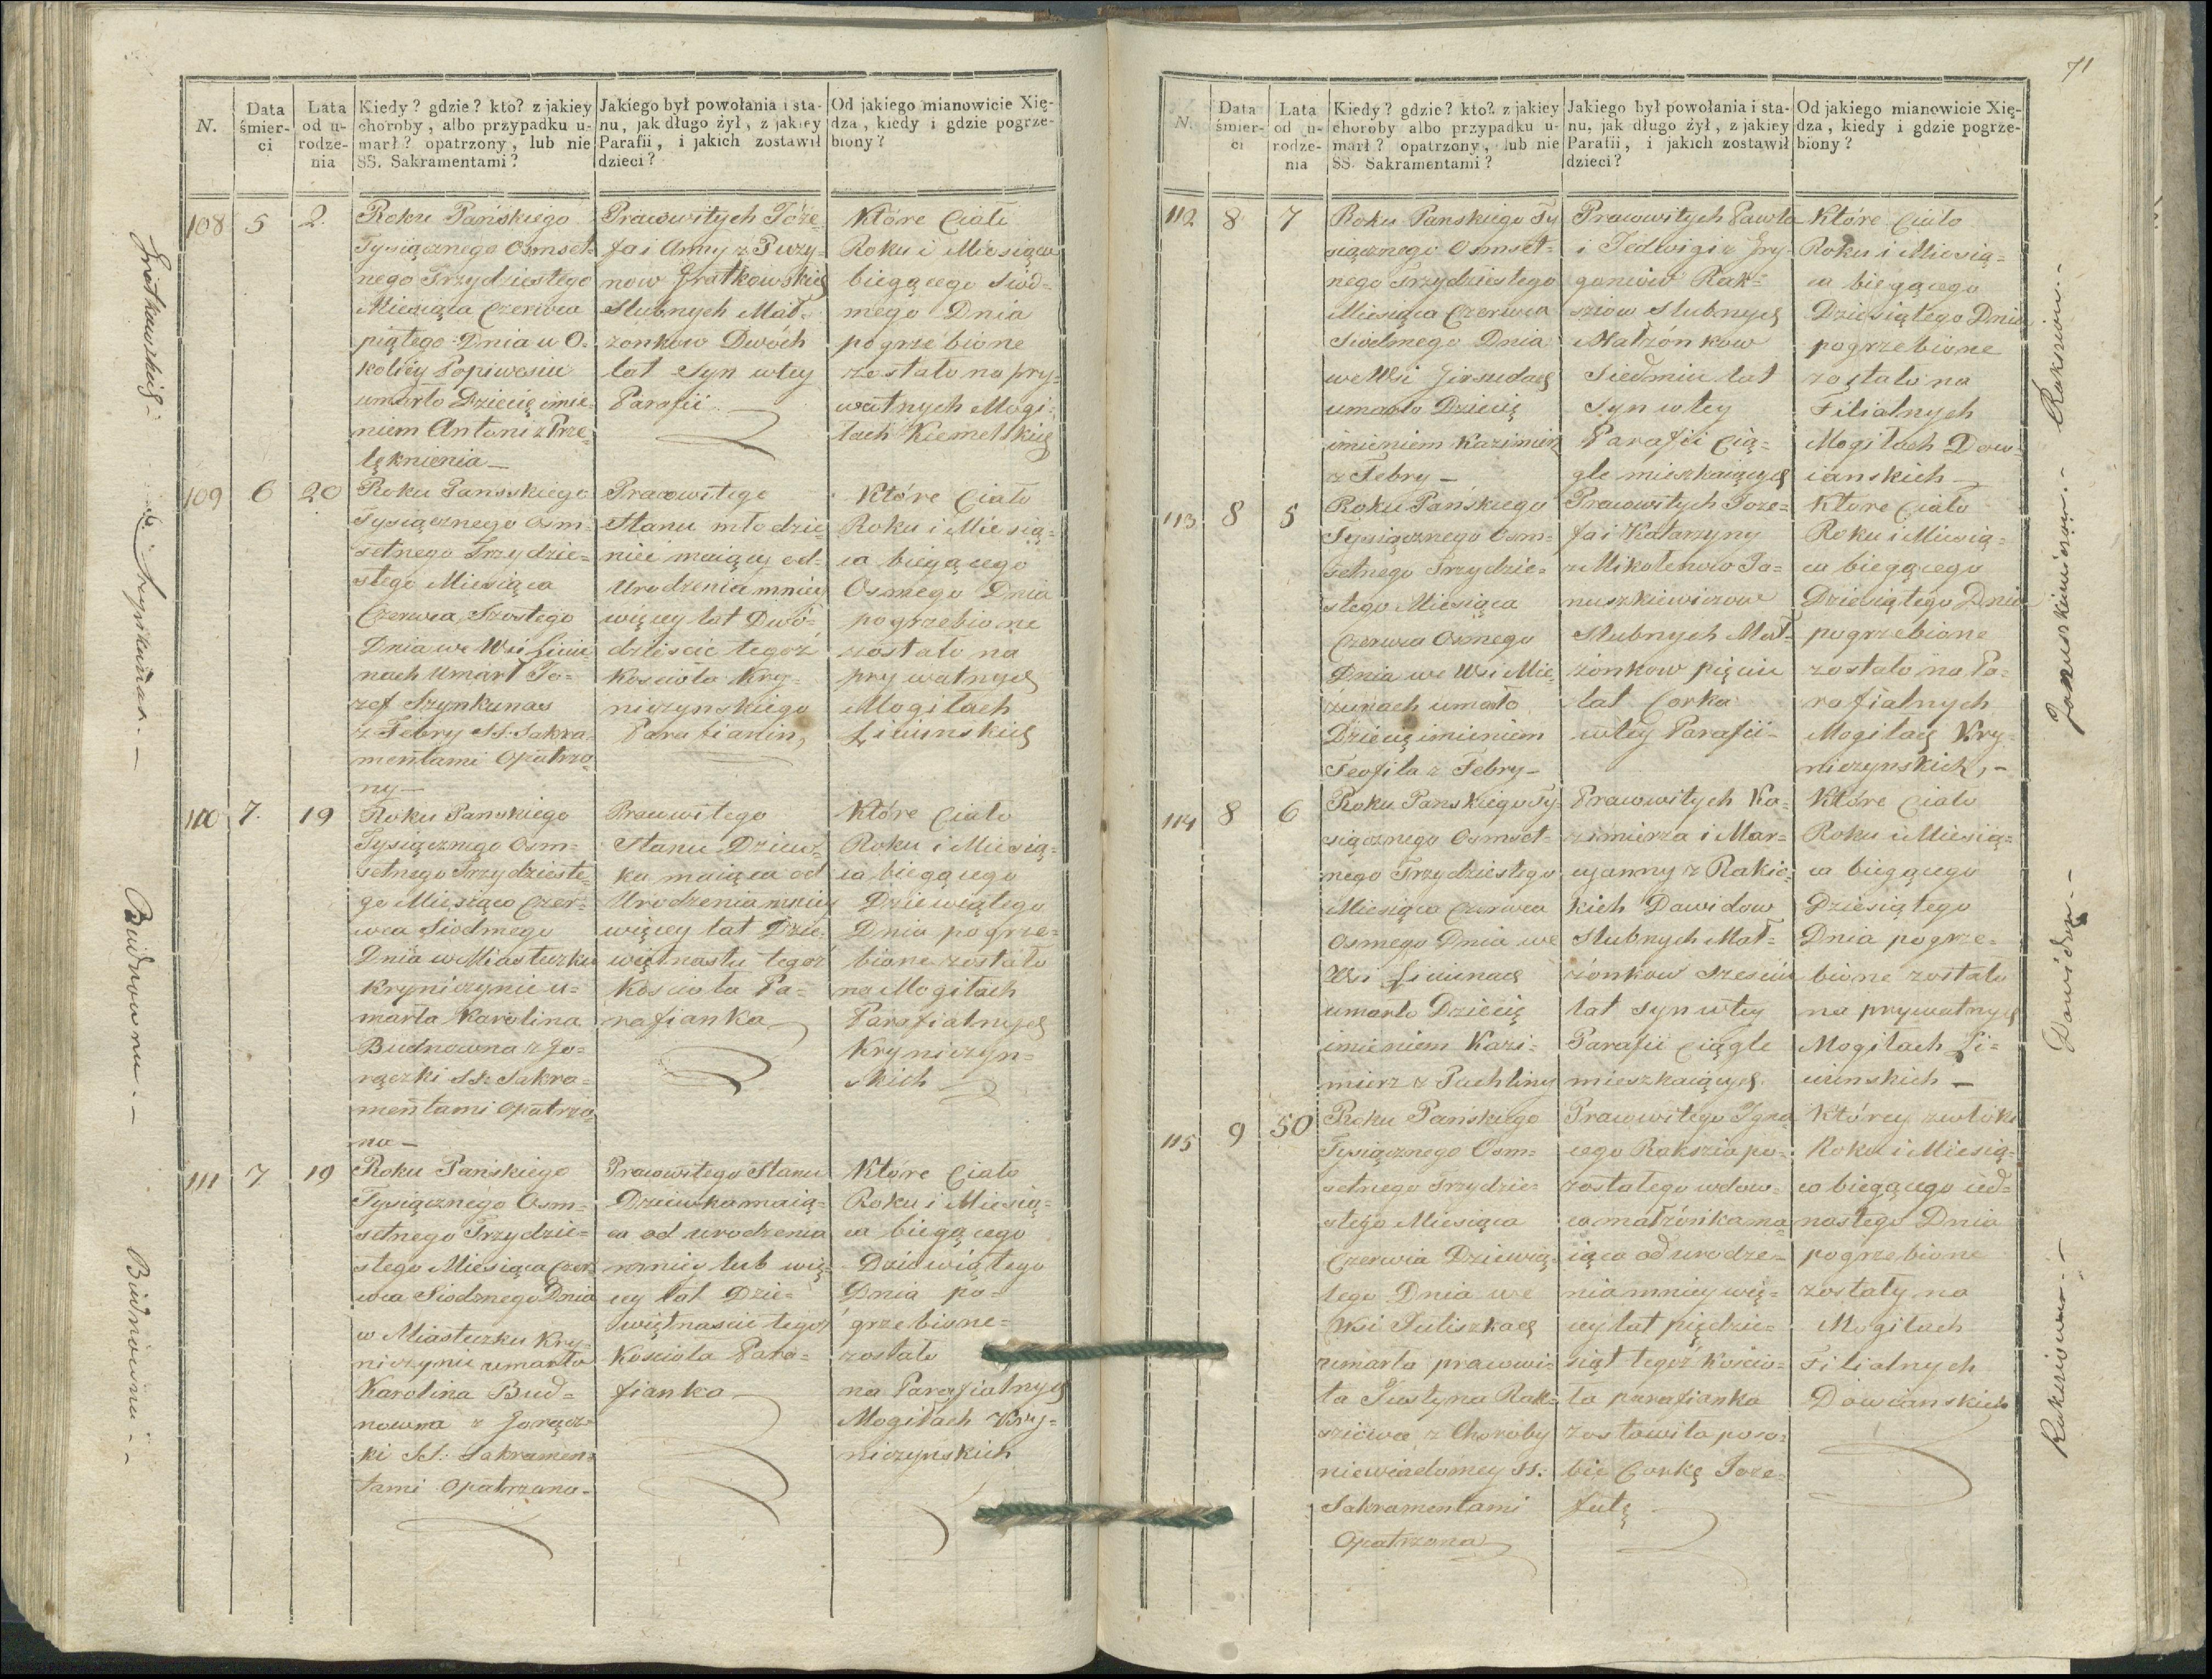 71
N.
Data śmierci
Lata od urodzenia
Kiedy? gdzie? kto? z jakiey choroby, albo przypadku umarł? opatrzony, lub nie SS. Sakramentami?
Jakiego był powołania i stanu, jak długo żył, z jakiey Parafii, i jakich zostawił dzieci?
Od jakiego mianowicie Xiędza, kiedy i gdzie pogrzebiony?
108
5
2.
Roku Pańskiego
Tysiącznego Osmset-
nego Trzydziestego
Miesiąca Czerwca
piątego Dnia w O-
kolicy Popiwesiu
umarło Dziecię imie-
niem Antoni z Prze-
lęknienia
Prawowitych Józe-
fa i Anny z Puzy-
now
Slubnych Mał-
żonkow Dwóch
lat Syn wtey
Parafii
Które Ciało
Roku i Miesiąca
biegącego Siod-
mego Dnia
pogrzebione
zostało na pry-
watnych Mogi-
łach
109
6
20
Roku Panskiego
Tysiącznego Osm-
setnego Trzydzie-
stego Miesiąca
Czerwca Szostego
Dnia we Wsi Liciu-
nach Umarł Jo-
zef Szynkunas
z Febry SS. Sakra-
mentami Opatrzo-
ny
Prawowitego
Stanu młodzie-
niec maiący od
Urodzenia mniey
więcey lat Dwó-
dziescie tegoż
Koscioła Kry-
niczynskiego
Parafianin,
Które Ciało
Roku i Miesią-
ca biegącego
Osmego Dnia
pogrzebione
zostało na
prywatnych
Mogiłach
Liciunskich
110
7.
19
Roku Panskiego
Tysiącznego Osm-
setnego Trzydzieste-
go Miesiąca Czer-
wca Siodmego
Dnia w Miasteczku
Kryniczynie u-
marła Karolina
Budnowna z Go-
rączki SS. Sakra-
mentami Opatrzo-
na
Prawowitego
Stanu Dziew-
ka maiąca od
Urodzenia mniey
więcey lat Dzie-
więtnastu tegoż
Koscioła Pa-
rafianka
Które Ciało
Roku i Miesią-
ca biegącego
Dziewiątego
Dnia pogrze-
bione zostało
na Mogiłach
Parafialnych
Kryniczyn-
skich
111
7
19
Roku Pańskiego
Tysiącznego Osm-
setnego Trzydzie-
stego Miesiąca Czer-
wca Siodmego Dnia
w Miasteczku Kry-
niczynie umarła
Karolina Bud-
nowna z Gorącz-
ki SS. Sakramen-
tami Opatrzona
Prawowitego Stanu
Dziewka maią-
ca od urodzenia
mniey lub wię-
cey lat Dzie-
więtnascie tegoż
Koscioła Para-
fianka
Które Ciało
Roku i Miesią-
ca biegącego
Dziewiątego
Dnia po-
grzebione
zostało
na Parafialnych
Mogiłach Kry-
niczynskich
Budnowna
Budnowna
N.
Data śmierci
Lata od urodzenia
Kiedy? gdzie? kto? z jakiey choroby albo przypadku umarł? opatrzony, lub nie SS. Sakramentami?
Jakiego był powołania i stanu, jak długo żył, z jakiey Parafii, i jakich zostawił dzieci?
Od jakiego mianowicie Xiędza, kiedy i gdzie pogrzebiony?
112
8
7
Roku Panskiego Ty-
siącznego Osmset-
nego Trzydziestego
Miesiąca Czerwca
Siodmego Dnia
we Wsi
umarło Dziecię
imieniem Kazimierz
z Febry
Prawowitych Pawła
i Jedwigi z Gry-
goniow Rak-
sziow Slubnych
Małżonkow
Siedmiu lat
Syn wtey
Parafii Cią-
gle mieszkaiących
Które Ciało
Roku i Miesią-
ca biegącego
Dziesiątego Dnia
pogrzebione
zostało na
Filialnych
Mogiłach Dow-
ianskich
113
8
5
Roku Pańskiego
Tysiącznego Osm-
setnego Trzydzie-
stego Miesiąca
Czerwca Osmego
Dnia we Wsi Mie-
żunach umarło
Dziecię imieniem
Teofila z Febry
Prawowitych Joze-
fa i Katarzyny
z Mikolenow Ja-
nuszkiewiczow
Slubnych Mał-
żonkow pięciu
lat Corka
wtey Parafii
Które Ciało
Roku i Miesią-
ca biegącego
Dziesiątego Dnia
pogrzebione
zostało na Pa-
rafialnych
Mogiłach Kry-
niczynskich,
114
8
6
Roku Panskiego Ty-
siącznego Osmset-
nego Trzydziestego
Miesiąca Czerwca
Osmego Dnia we
Wsi Liciunach
umarło Dziecię
imieniem Kazi-
mierz z Puchliny
Prawowitych Ka-
zimierza i Mar-
cyanny z Rakic-
kich Dawidow
Slubnych Mał-
żonkow Szesciu
lat Syn wtey
Parafii Ciągle
mieszkaiących
Które Ciało
Roku i Miesią-
ca biegącego
Dziesiątego
Dnia pogrze-
bione zostało
na prywatnych
Mogiłach Li-
ciunskich
115
9
50
Roku Pańskiego
Tysiącznego Osm-
setnego Trzydzie-
stego Miesiąca
Czerwca Dziewią-
tego Dnia we
Wsi Juliszkach
umarła prawowi-
ta Justyna Rak-
sziowa z Choroby
niewiadomey SS.
Sakramentami
Opatrzona
Prawowitego Igna-
cego Rakszia po-
zostałego wdow-
ca małżonka ma-
iąca od urodze-
nia mniey wię-
cey lat pięćdzie-
siąt tegoż Koscio-
ła parafianka
zostawiła poso-
bie Corkę Joze-
fatę
Którey zwłoki
Roku i Miesią-
ca biegącego ied-
nastego Dnia
pogrzebione
zostały na
Mogiłach
Filialnych
Dowianskich
Raksziow.
Januszkiewiczow.
Dawidow
Rakziowa